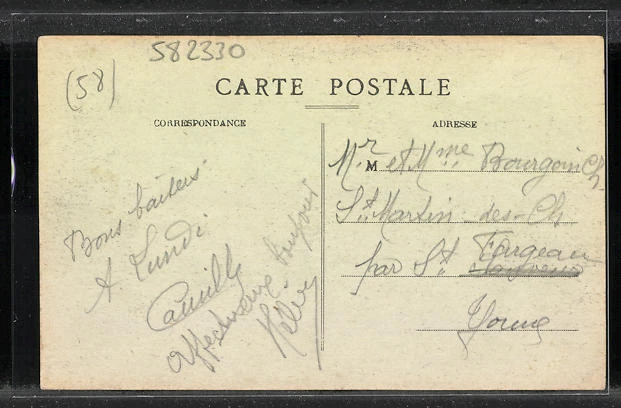 582330
(58)
CARTE POSTALE
CORRESPONDANCE
ADRESSE
Bons baisers
A Lundi
Camille
affectueux bonjour
Mr et Mme Bourgoin Ch.
St Martin des-Ch
par St Fargeau
Yonne